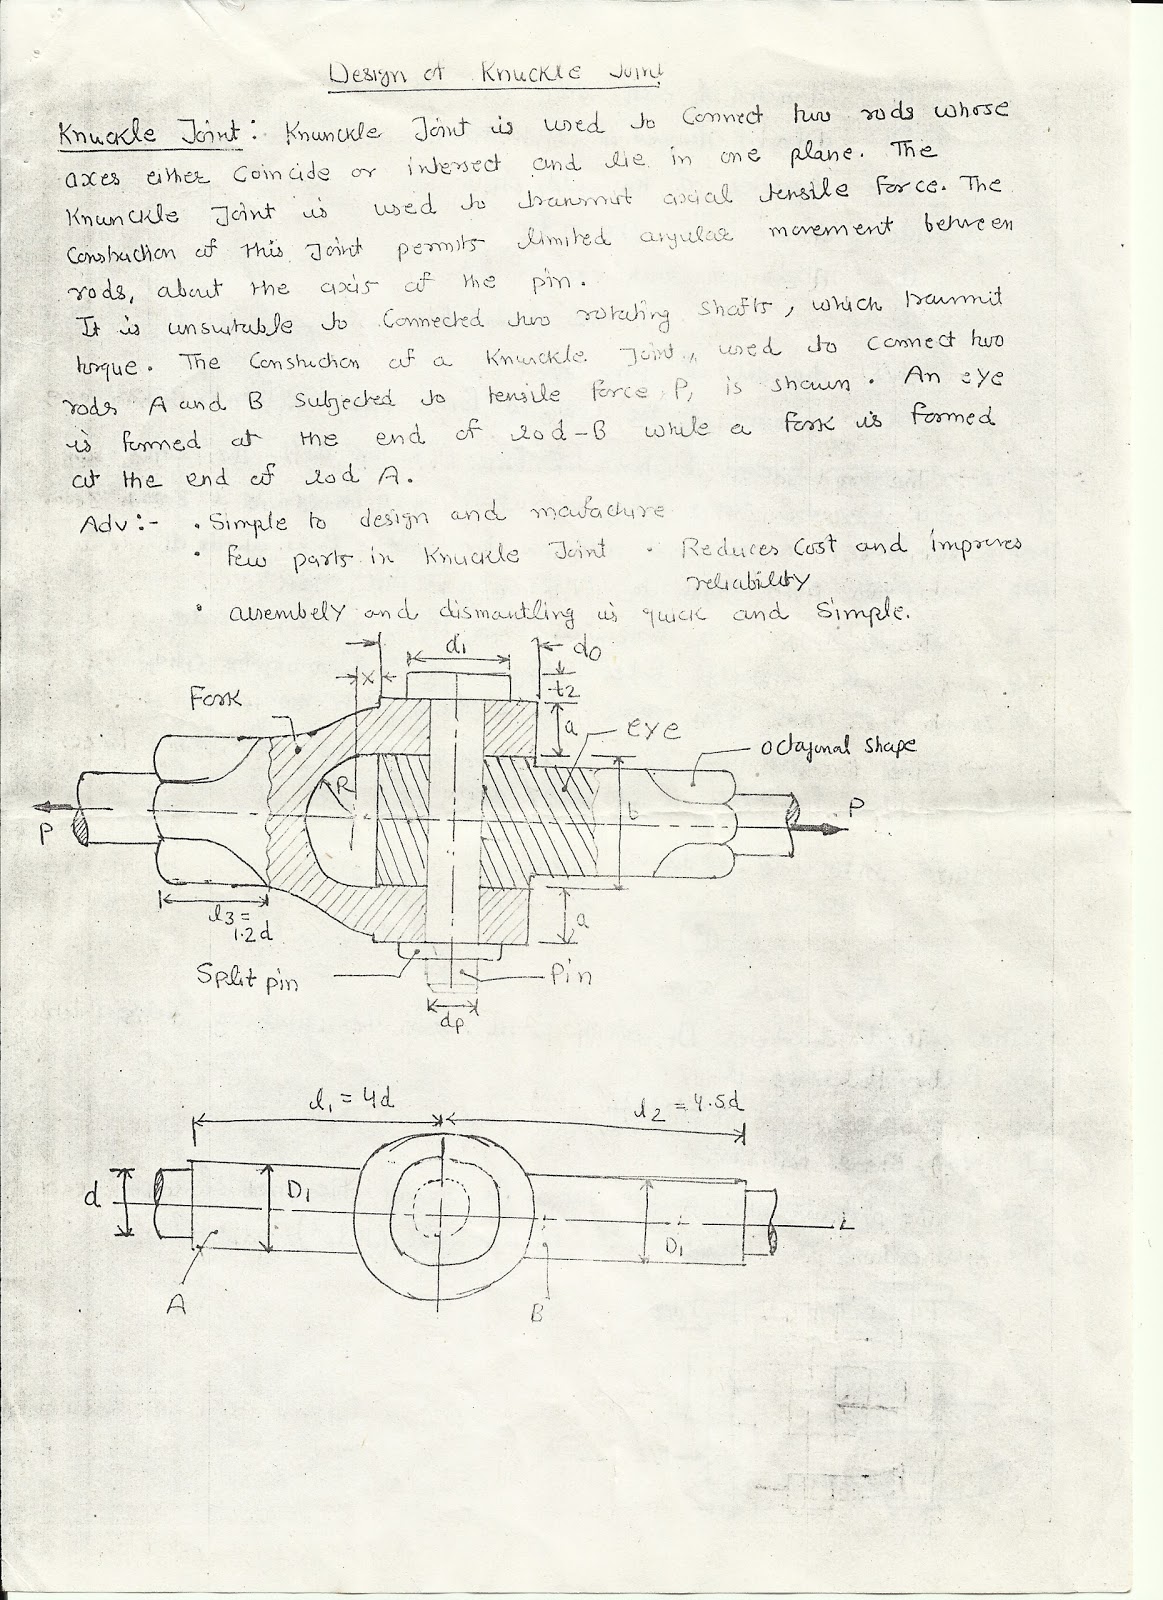 Design of Knuckle Joint
Knuckle Joint: Knunckle Joint is used to Connect two rods whose
axes either Coincide or intersect and lie in one plane. The
Knunckle Joint is used to transmit axial tensile force. The
Constuction of this Joint permits limited angular movement between
rods, about the axis of the pin.
It is unsuitable to Connected two rotating shafts, which transmit
torque. The Constuction of a Knuckle Joint, used to connect two
rods A and B Subjected to tensile force P, is shown. An eye
is formed at the end of rod-B while a fork is formed
at the end of rod A.
Adv:- • Simple to design and manufacture
• few parts in Knuckle Joint • Reduces Cost and improves
reliability
• assembely and dismantling is quick and Simple.
d1 d0
x t2
Fork a eye
octagonal shape
R b
P P
l3 =
1.2d
a
Split pin Pin
dp
l1 = 4d l2 = 4.5d
d D1 D1
A B